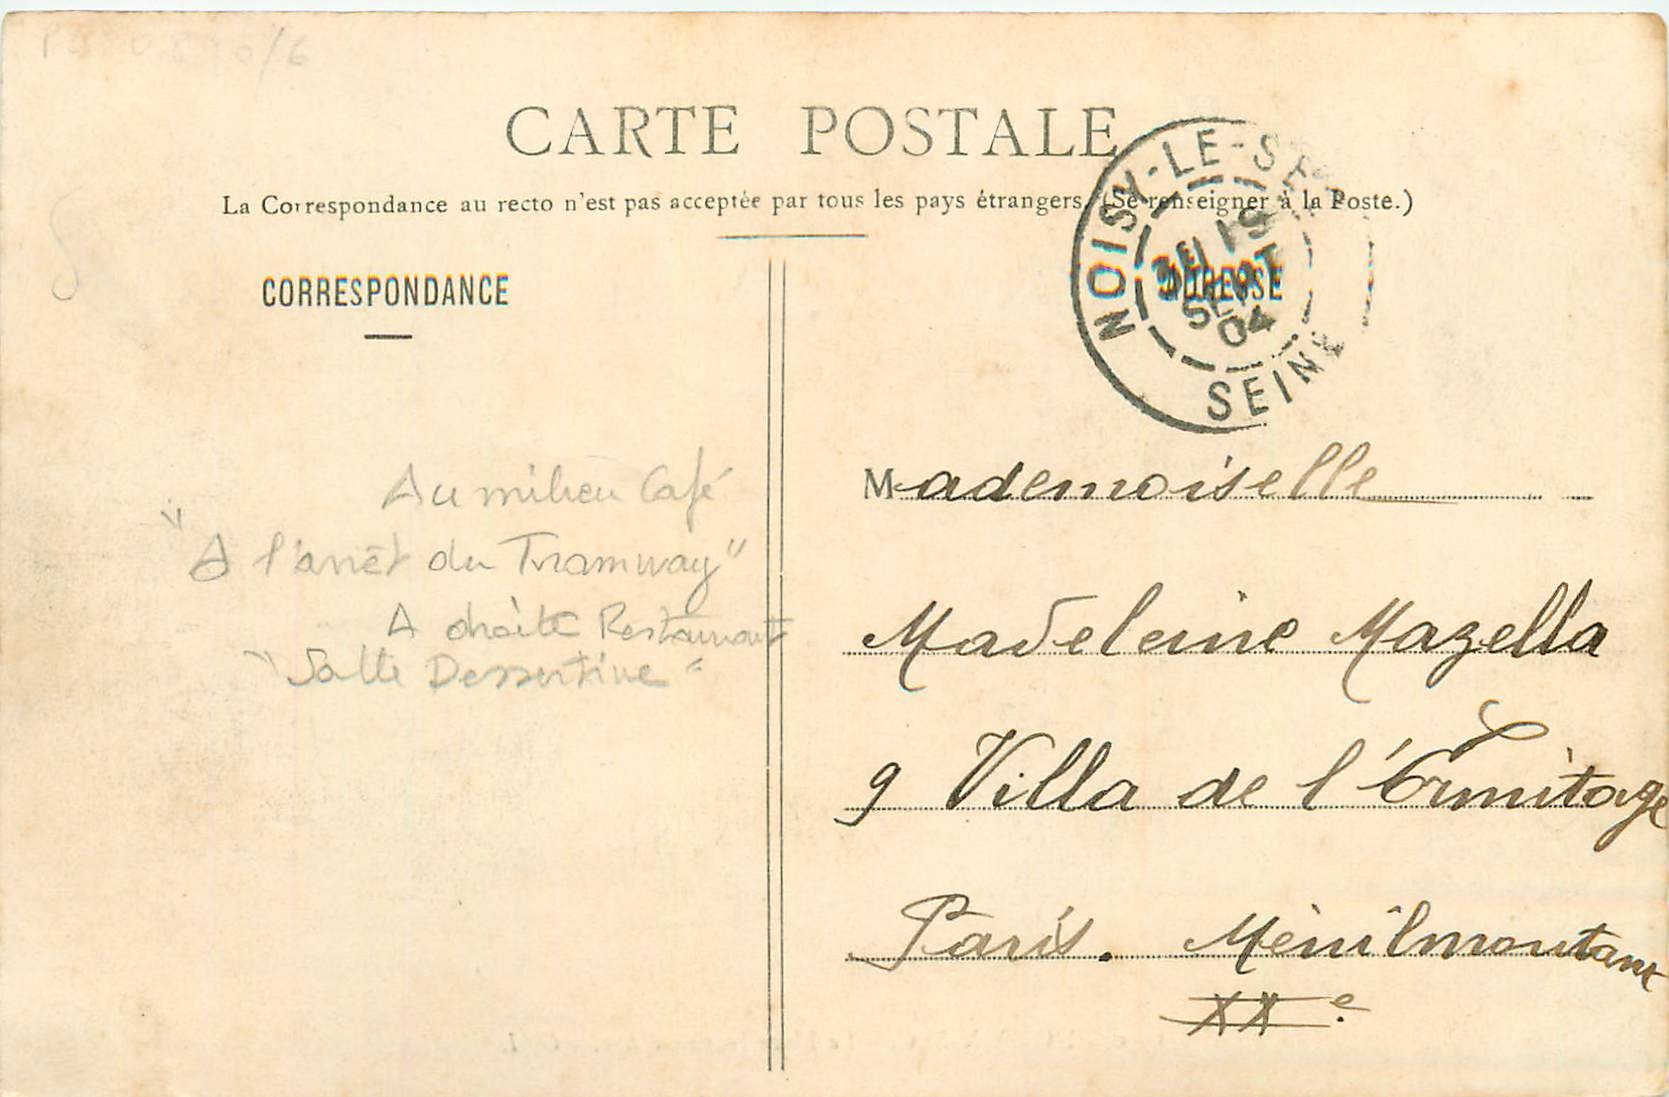 CARTE POSTALE
La Correspondance au recto n'est pas acceptée par tous les pays étrangers. (Se renseigner à la Poste.)
CORRESPONDANCE
ADRESSE
NOISY-LE-SEC
19
SEPT
04
SEINE
Au milieu Café
"A l'arrêt du Tramway"
A droite Restaurant
"Salle Dessertine"
Mademoiselle
Madeleine Mazella
9 Villa de l'Ermitage
Paris. Ménilmontant
XXe.